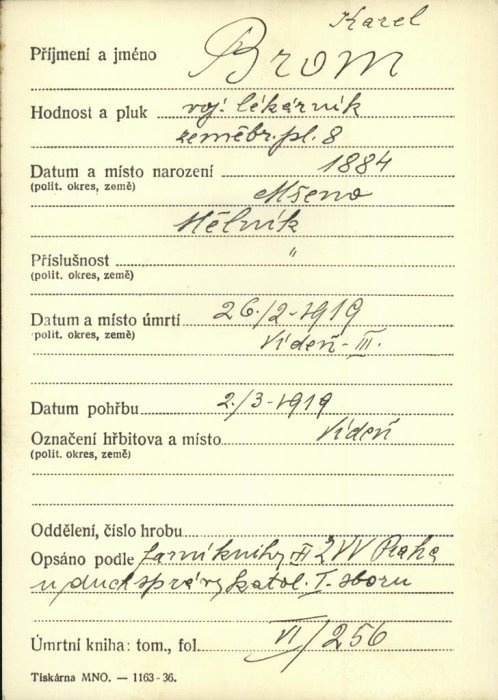 Karel
Příjmení a jméno Brom
Hodnost a pluk voj. lékárník
zeměbr. pl. 8
Datum a místo narození 1884
(polit. okres, země) Mšeno
Mělník
Příslušnost "
(polit. okres, země)
Datum a místo úmrtí 26./2-1919
(polit. okres, země) Vídeň-III.
Datum pohřbu 2./3-1919
Označení hřbitova a místo Vídeň
(polit. okres, země)
Oddělení, číslo hrobu
Opsáno podle farní knihy ZVV Praha
u duch správy katol. I. sboru
Úmrtní kniha: tom., fol. VI/256
Tiskárna MNO. — 1163-36.